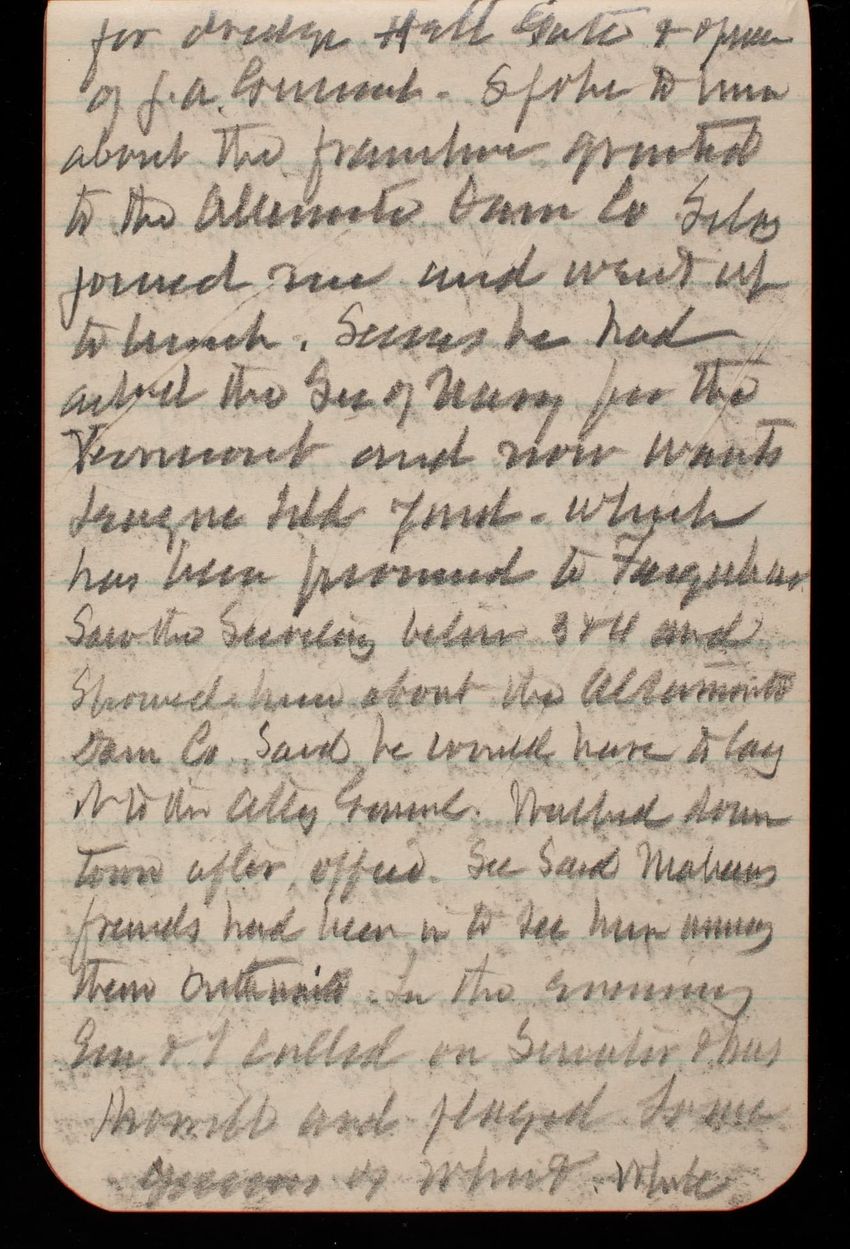 for dredge Hell Gate & opin
of J.A. Connant - Spoke to him
about the franchise granted
to the Altamonte Dam Co Selas
joined me and went up
to lunch. Seems he had
asked the Sec of Navy for the
Vermont and now wants
League Isld yard - which
has been promised to Farquhar
Saw the Secretary before 3 & 4 and
Showed him about the Altamonte
Dam Co. Said he would have to lay
it to the Atty General. Walked down
town after office. Sec Said Mahans
friends had been in to see him among
them Outhwaite. In the evening
Em & I called on Senator & Mrs
Morrill and played some
games of Whist. While